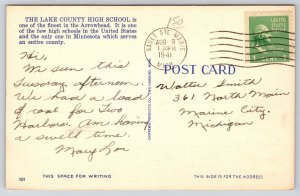 THE LAKE COUNTY HIGH SCHOOL is
one of the finest in the Arrowhead. It is one
of the few high schools in the United States
and the only one in Minnesota which serves
an entire county.
SAULT STE MARIE
AUG 8
1 30 PM
1941
MICH.
UNITED STATES
POSTAGE
1 CENT 1
POST CARD
Hi,
We seen this
afternoon.
We had a load
of coal for Two
Harbors. Am having
a swell time.
Mary Lou
Walter Smith
361 North Main
Marine City,
Michigan
101
THIS SPACE FOR WRITING
THIS SIDE IS FOR THE ADDRESS